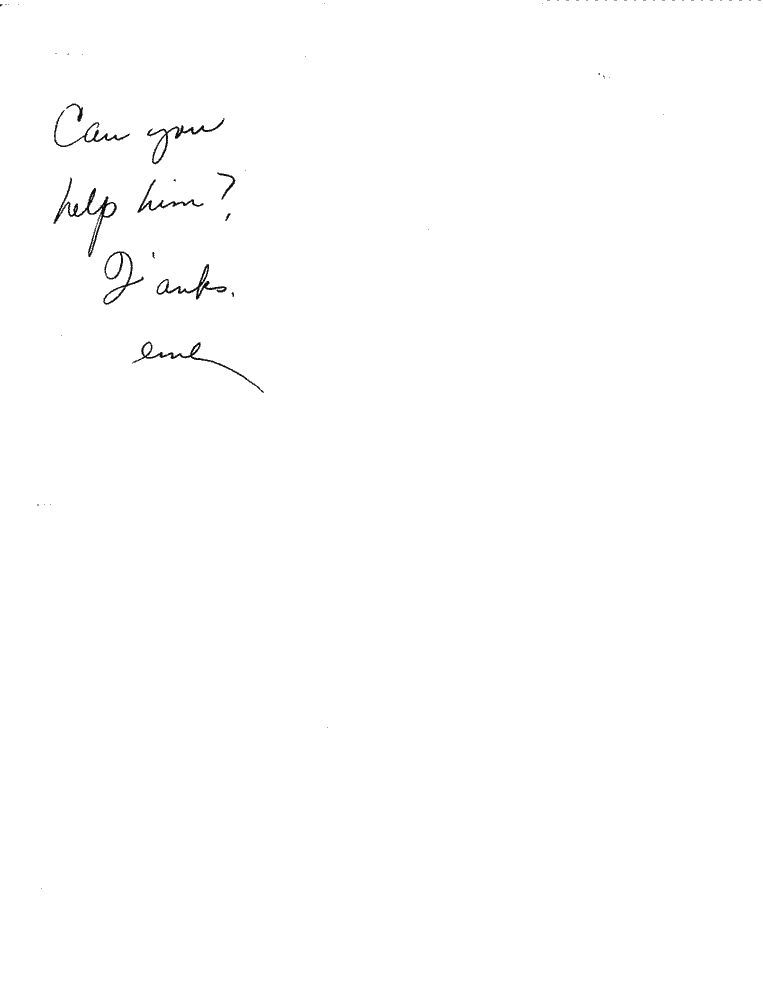 Can you
help him?
T'anks.
eml